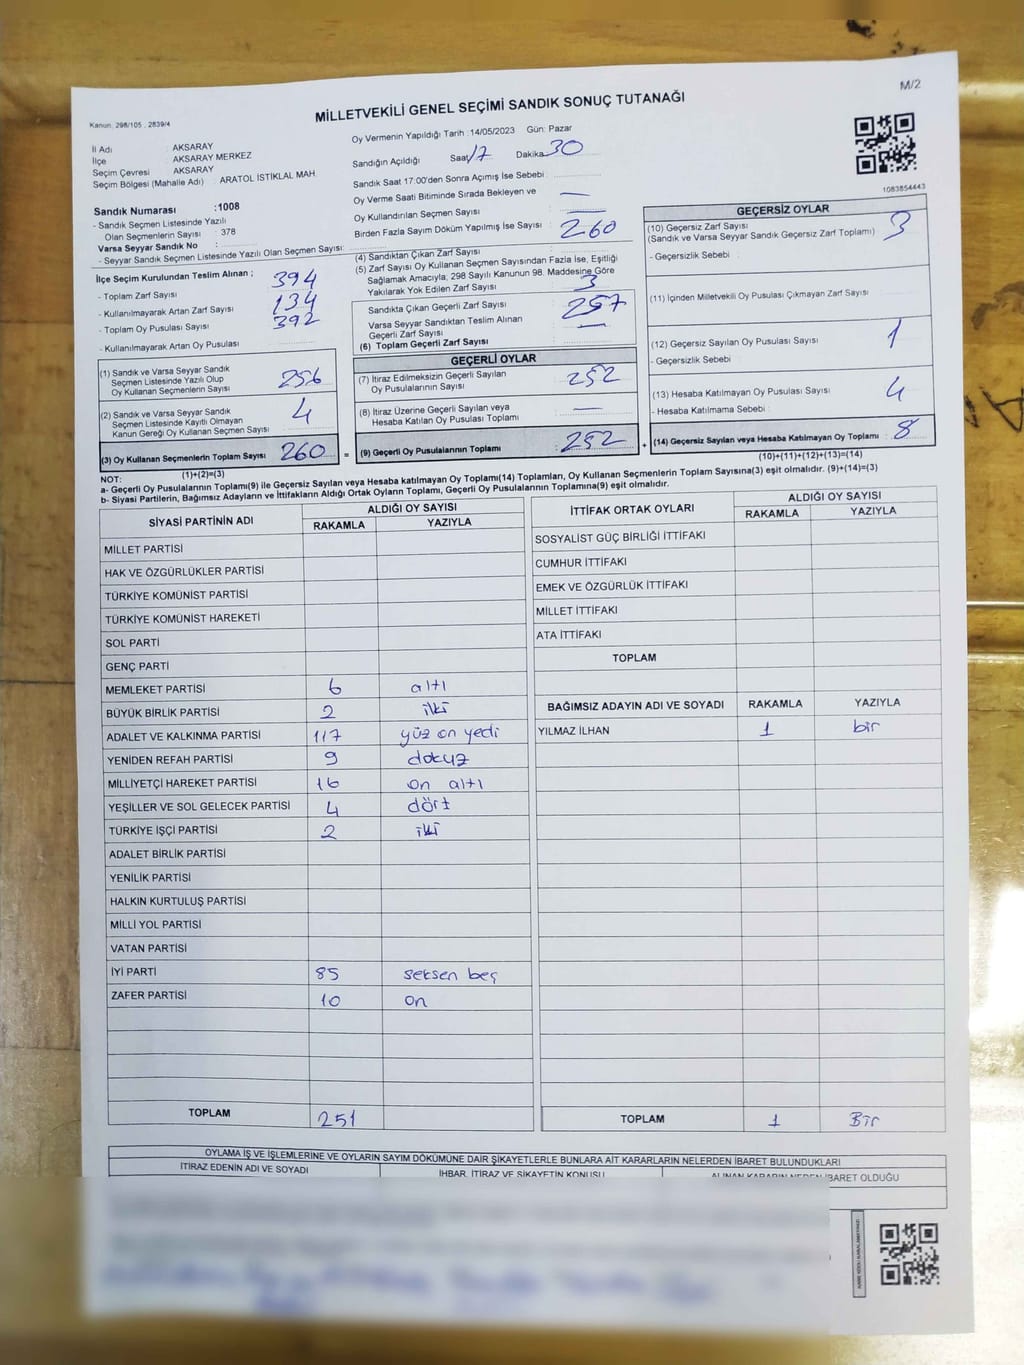 M/2
MİLLETVEKİLİ GENEL SEÇİMİ SANDIK SONUÇ TUTANAĞI
Kanun: 298/105 , 2839/4
İl Adı : AKSARAY
İlçe : AKSARAY MERKEZ
Seçim Çevresi : AKSARAY
Seçim Bölgesi (Mahalle Adı) : ARATOL İSTİKLAL MAH.
Sandık Numarası : 1008
- Sandık Seçmen Listesinde Yazılı
Olan Seçmenlerin Sayısı : 378
Varsa Seyyar Sandık No :
- Seyyar Sandık Seçmen Listesinde Yazılı Olan Seçmen Sayısı:
İlçe Seçim Kurulundan Teslim Alınan ;
- Toplam Zarf Sayısı 394
- Kullanılmayarak Artan Zarf Sayısı 134
- Toplam Oy Pusulası Sayısı 392
- Kullanılmayarak Artan Oy Pusulası
(1) Sandık ve Varsa Seyyar Sandık
Seçmen Listesinde Yazılı Olup
Oy Kullanan Seçmenlerin Sayısı 256
(2) Sandık ve Varsa Seyyar Sandık
Seçmen Listesinde Kayıtlı Olmayan
Kanun Gereği Oy Kullanan Seçmen Sayısı 4
(3) Oy Kullanan Seçmenlerin Toplam Sayısı 260 =
(1)+(2)=(3)
Oy Vermenin Yapıldığı Tarih :14/05/2023 Gün: Pazar
Sandığın Açıldığı Saat 17 Dakika 30
Sandık Saat 17:00'den Sonra Açımış İse Sebebi :
Oy Verme Saati Bitiminde Sırada Bekleyen ve
Oy Kullandırılan Seçmen Sayısı —
Birden Fazla Sayım Döküm Yapılmış İse Sayısı : —
(4) Sandıktan Çıkan Zarf Sayısı 260
(5) Zarf Sayısı Oy Kullanan Seçmen Sayısından Fazla İse, Eşitliği
Sağlamak Amacıyla; 298 Sayılı Kanunun 98. Maddesine Göre
Yakılarak Yok Edilen Zarf Sayısı
Sandıkta Çıkan Geçerli Zarf Sayısı 3 257
Varsa Seyyar Sandıktan Teslim Alınan
Geçerli Zarf Sayısı —
(6) Toplam Geçerli Zarf Sayısı
GEÇERLİ OYLAR
(7) İtiraz Edilmeksizin Geçerli Sayılan
Oy Pusulalarının Sayısı 252
(8) İtiraz Üzerine Geçerli Sayılan veya
Hesaba Katılan Oy Pusulası Toplamı —
(9) Geçerli Oy Pusulalarının Toplamı : 252 +
1083854443
GEÇERSİZ OYLAR
(10) Geçersiz Zarf Sayısı 3
(Sandık ve Varsa Seyyar Sandık Geçersiz Zarf Toplamı)
- Geçersizlik Sebebi :
(11) İçinden Milletvekili Oy Pusulası Çıkmayan Zarf Sayısı
(12) Geçersiz Sayılan Oy Pusulası Sayısı 1
- Geçersizlik Sebebi
(13) Hesaba Katılmayan Oy Pusulası Sayısı 4
- Hesaba Katılmama Sebebi :
(14) Geçersiz Sayılan veya Hesaba Katılmayan Oy Toplamı : 8
(10)+(11)+(12)+(13)=(14)
NOT:
a- Geçerli Oy Pusulalarının Toplamı(9) ile Geçersiz Sayılan veya Hesaba katılmayan Oy Toplamı(14) Toplamları, Oy Kullanan Seçmenlerin Toplam Sayısına(3) eşit olmalıdır. (9)+(14)=(3)
b- Siyasi Partilerin, Bağımsız Adayların ve İttifakların Aldığı Ortak Oyların Toplamı, Geçerli Oy Pusulalarının Toplamına(9) eşit olmalıdır.
SİYASİ PARTİNİN ADI ALDIĞI OY SAYISI
RAKAMLA YAZIYLA
MİLLET PARTİSİ
HAK VE ÖZGÜRLÜKLER PARTİSİ
TÜRKİYE KOMÜNİST PARTİSİ
TÜRKİYE KOMÜNİST HAREKETİ
SOL PARTİ
GENÇ PARTİ
MEMLEKET PARTİSİ 6 altı
BÜYÜK BİRLİK PARTİSİ 2 iki
ADALET VE KALKINMA PARTİSİ 117 yüz on yedi
YENİDEN REFAH PARTİSİ 9 dokuz
MİLLİYETÇİ HAREKET PARTİSİ 16 on altı
YEŞİLLER VE SOL GELECEK PARTİSİ 4 dört
TÜRKİYE İŞÇİ PARTİSİ 2 iki
ADALET BİRLİK PARTİSİ
YENİLİK PARTİSİ
HALKIN KURTULUŞ PARTİSİ
MİLLİ YOL PARTİSİ
VATAN PARTİSİ
İYİ PARTİ 85 seksen beş
ZAFER PARTİSİ 10 on
TOPLAM 251
İTTİFAK ORTAK OYLARI ALDIĞI OY SAYISI
RAKAMLA YAZIYLA
SOSYALİST GÜÇ BİRLİĞİ İTTİFAKI
CUMHUR İTTİFAKI
EMEK VE ÖZGÜRLÜK İTTİFAKI
MİLLET İTTİFAKI
ATA İTTİFAKI
TOPLAM
BAĞIMSIZ ADAYIN ADI VE SOYADI RAKAMLA YAZIYLA
YILMAZ İLHAN 1 bir
TOPLAM 1 Bir
OYLAMA İŞ VE İŞLEMLERİNE VE OYLARIN SAYIM DÖKÜMÜNE DAİR ŞİKAYETLERLE BUNLARA AİT KARARLARIN NELERDEN İBARET BULUNDUKLARI
İTİRAZ EDENİN ADI VE SOYADI İHBAR, İTİRAZ VE ŞİKAYETİN KONUSU ALINAN KARARIN NEDEN İBARET OLDUĞU